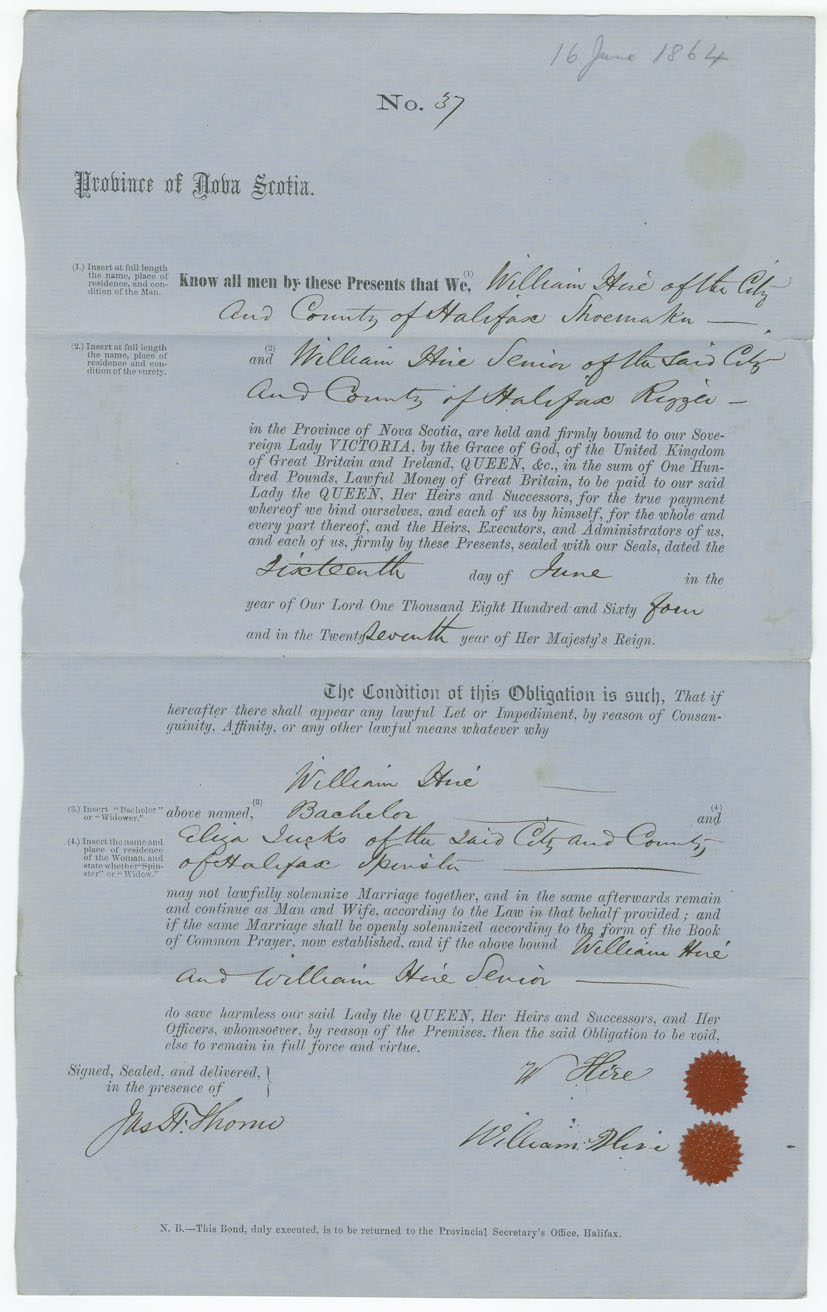 16 June 1864
No. 37
Province of Nova Scotia.
(1.) Insert at full length
the name, place of
residence, and con-
dition of the Man.
Know all men by these Presents that We, (1) William Hire of the City
And County of Halifax Shoemaker —
(2.) Insert at full length
the name, place of
residence and con-
dition of the surety.
and (2) William Hire Senior of the said City
And County of Halifax Rigger —
in the Province of Nova Scotia, are held and firmly bound to our Sove-
reign Lady VICTORIA, by the Grace of God, of the United Kingdom
of Great Britain and Ireland, QUEEN, &c., in the sum of One Hun-
dred Pounds, Lawful Money of Great Britain, to be paid to our said
Lady the QUEEN, Her Heirs and Successors, for the true payment
whereof we bind ourselves, and each of us by himself, for the whole and
every part thereof, and the Heirs, Executors, and Administrators of us,
and each of us, firmly by these Presents, sealed with our Seals, dated the
Sixteenth day of June in the
year of Our Lord One Thousand Eight Hundred and Sixty four
and in the Twenty Seventh year of Her Majesty's Reign.
The Condition of this Obligation is such, That if
hereafter there shall appear any lawful Let or Impediment, by reason of Consan-
guinity, Affinity, or any other lawful means whatever why
William Hire —
(3.) Insert "Bachelor"
or "Widower."
above named, (3) Bachelor — and (4)
(4.) Insert the name and
place of residence
of the Woman, and
state whether "Spin-
ster" or "Widow."
Eliza Jucks of the said City and County
of Halifax Spinster —
may not lawfully solemnize Marriage together, and in the same afterwards remain
and continue as Man and Wife, according to the Law in that behalf provided; and
if the same Marriage shall be openly solemnized according to the form of the Book
of Common Prayer, now established, and if the above bound William Hire
And William Hire Senior —
do save harmless our said Lady the QUEEN, Her Heirs and Successors, and Her
Officers, whomsoever, by reason of the Premises, then the said Obligation to be void,
else to remain in full force and virtue.
Signed, Sealed, and delivered,
in the presence of
W Hire
Jas H. Thorne
William Hire
N. B.—This Bond, duly executed, is to be returned to the Provincial Secretary's Office, Halifax.